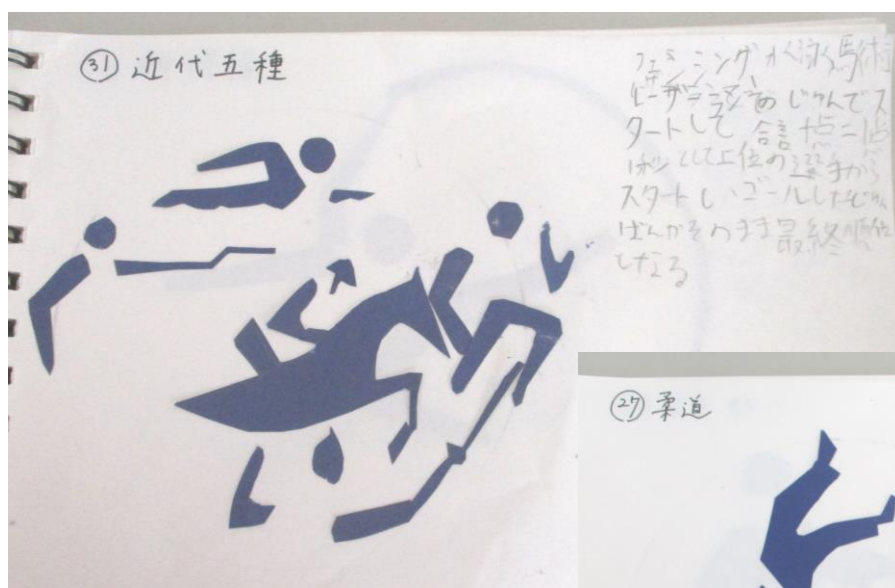 ㉛ 近代五種
フェンシング 水泳 馬術
のじゅんでス
タートして 合計
して上位の選手から
スタートし、ゴールしたじゅん
ばんがそのまま最終順位
となる
㉗ 柔道